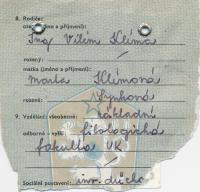 8. Rodiče:
otec (jméno a příjmení):
Ing Vilém Klíma
rozený:
matka (jméno a příjmení):
Marta Klímová
rozená: Synková
9. Vzdělání: všeobecné: základní
odborné - vyšší: filologická
fakulta UK
Sociální postavení: inv. důcho